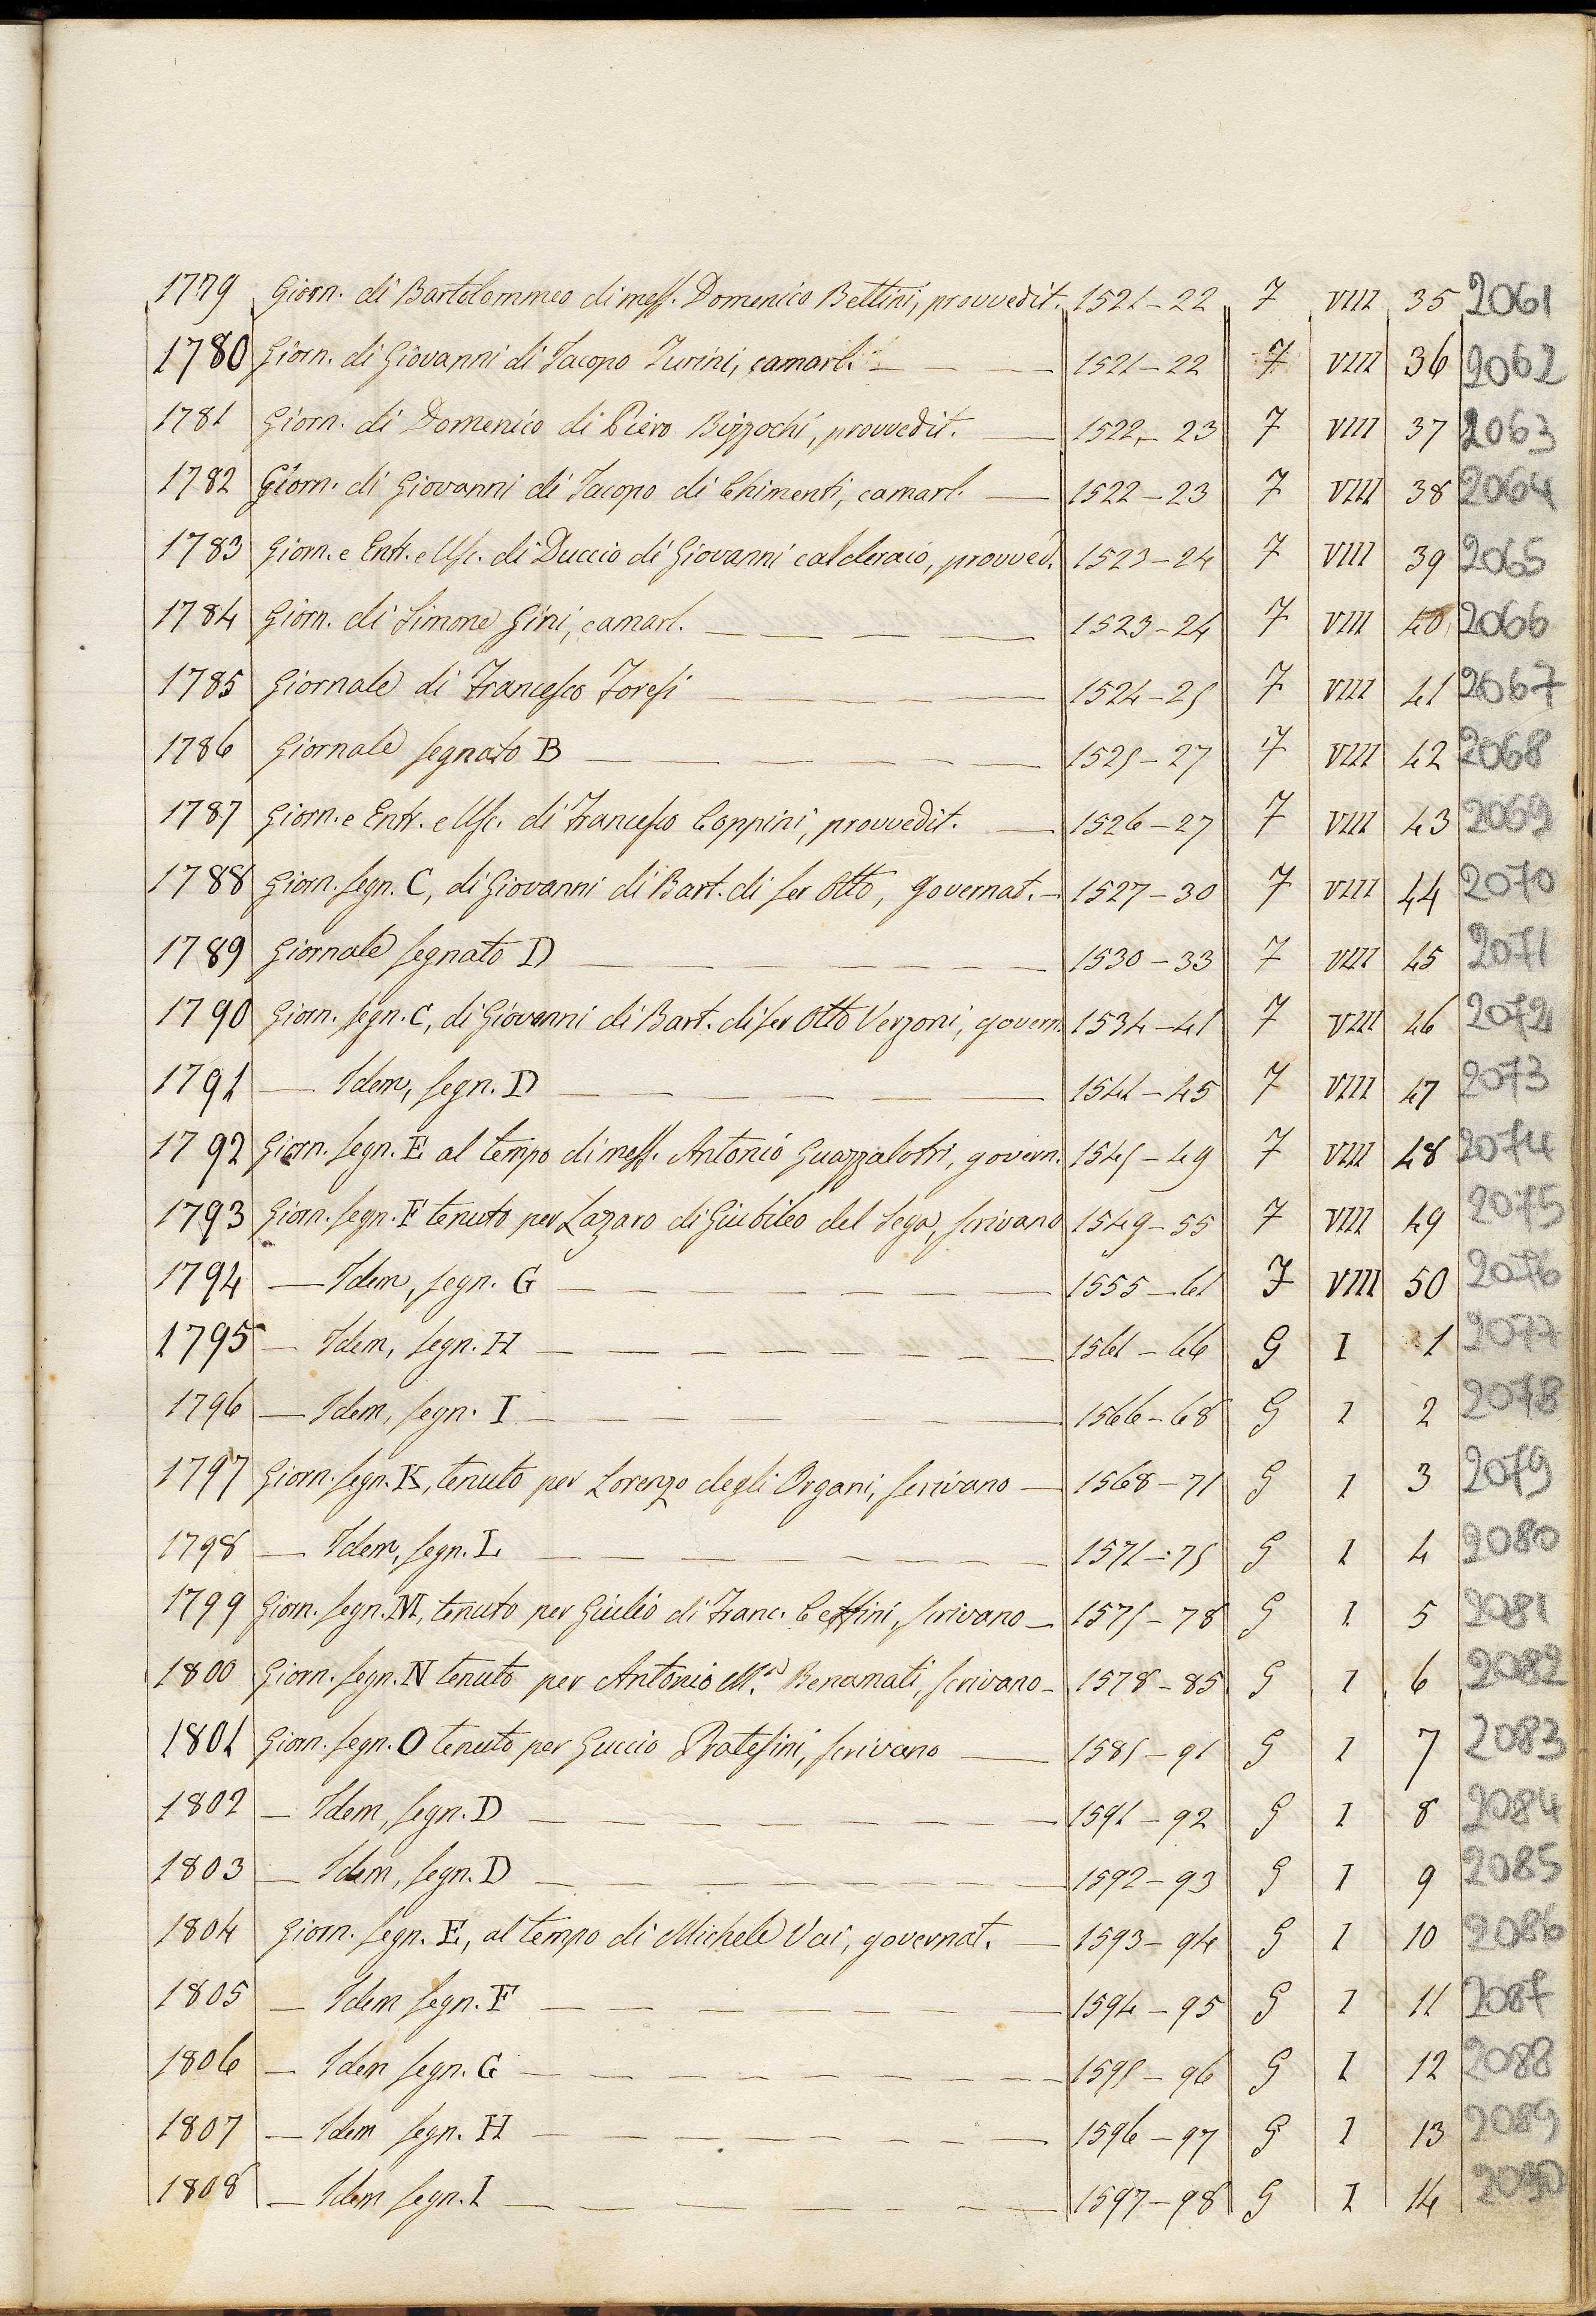 1779 Giorn. di Bartolommeo di mess. Domenico Bettini, provvedit. 1521-22 F VIII 35 2061
1780 Giorn. di Giovanni di Iacopo Turini, camarl. 1521-22 F VIII 36 2062
1781 Giorn. di Domenico di Piero Bizzochi, provvedit. 1522-23 F VIII 37 2063
1782 Giorn. di Giovanni di Iacopo di Chimenti, camarl. 1522-23 F VIII 38 2064
1783 Giorn. e Entr. e Usc. di Duccio di Giovanni calderaio, provved. 1523-24 F VIII 39 2065
1784 Giorn. di Simone Gini, camarl. 1523-24 F VIII 40 2066
1785 Giornale di Francesco Foresi 1524-25 F VIII 41 2067
1786 Giornale segnato B 1525-27 F VIII 42 2068
1787 Giorn. e Entr. e Usc. di Francesco Coppini, provvedit. 1526-27 F VIII 43 2069
1788 Giorn. segn. C, di Giovanni di Bart. di ser Otto, governat. 1527-30 F VIII 44 2070
1789 Giornale segnato D 1530-33 F VIII 45 2071
1790 Giorn. segn. C, di Giovanni di Bart. di ser Otto Verzoni, govern. 1534-41 F VIII 46 2072
1791 — Idem, segn. D 1541-45 F VIII 47 2073
1792 Giorn. segn. E al tempo di mess. Antonio Guazzalotri, govern. 1545-49 F VIII 48 2074
1793 Giorn. segn. F tenuto per Lazaro di Giubileo del Sega, scrivano 1549-55 F VIII 49 2075
1794 — Idem, segn. G 1555-61 F VIII 50 2076
1795 — Idem, segn. H 1561-66 G I 1 2077
1796 — Idem, segn. I 1566-68 G I 2 2078
1797 Giorn. segn. K, tenuto per Lorenzo degli Organi, scrivano 1568-71 G I 3 2079
1798 — Idem, segn. L 1571-75 G I 4 2080
1799 Giorn. segn. M, tenuto per Giulio di Franc. Ceffini, scrivano 1575-78 G I 5 2081
1800 Giorn. segn. N tenuto per Antonio M.a Benamati, scrivano 1578-85 G I 6 2082
1801 Giorn. segn. O tenuto per Guccio Pratesini, scrivano 1585-91 G I 7 2083
1802 — Idem, segn. D 1591-92 G I 8 2084
1803 — Idem, segn. D 1592-93 G I 9 2085
1804 Giorn. segn. E, al tempo di Michele Vai, governat. 1593-94 G I 10 2086
1805 — Idem segn. F 1594-95 G I 11 2087
1806 — Idem segn. G 1595-96 G I 12 2088
1807 — Idem segn. H 1596-97 G I 13 2089
1808 — Idem segn. I 1597-98 G I 14 2090